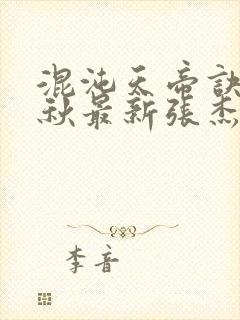 混沌天帝訣
秋最新張杰
李音